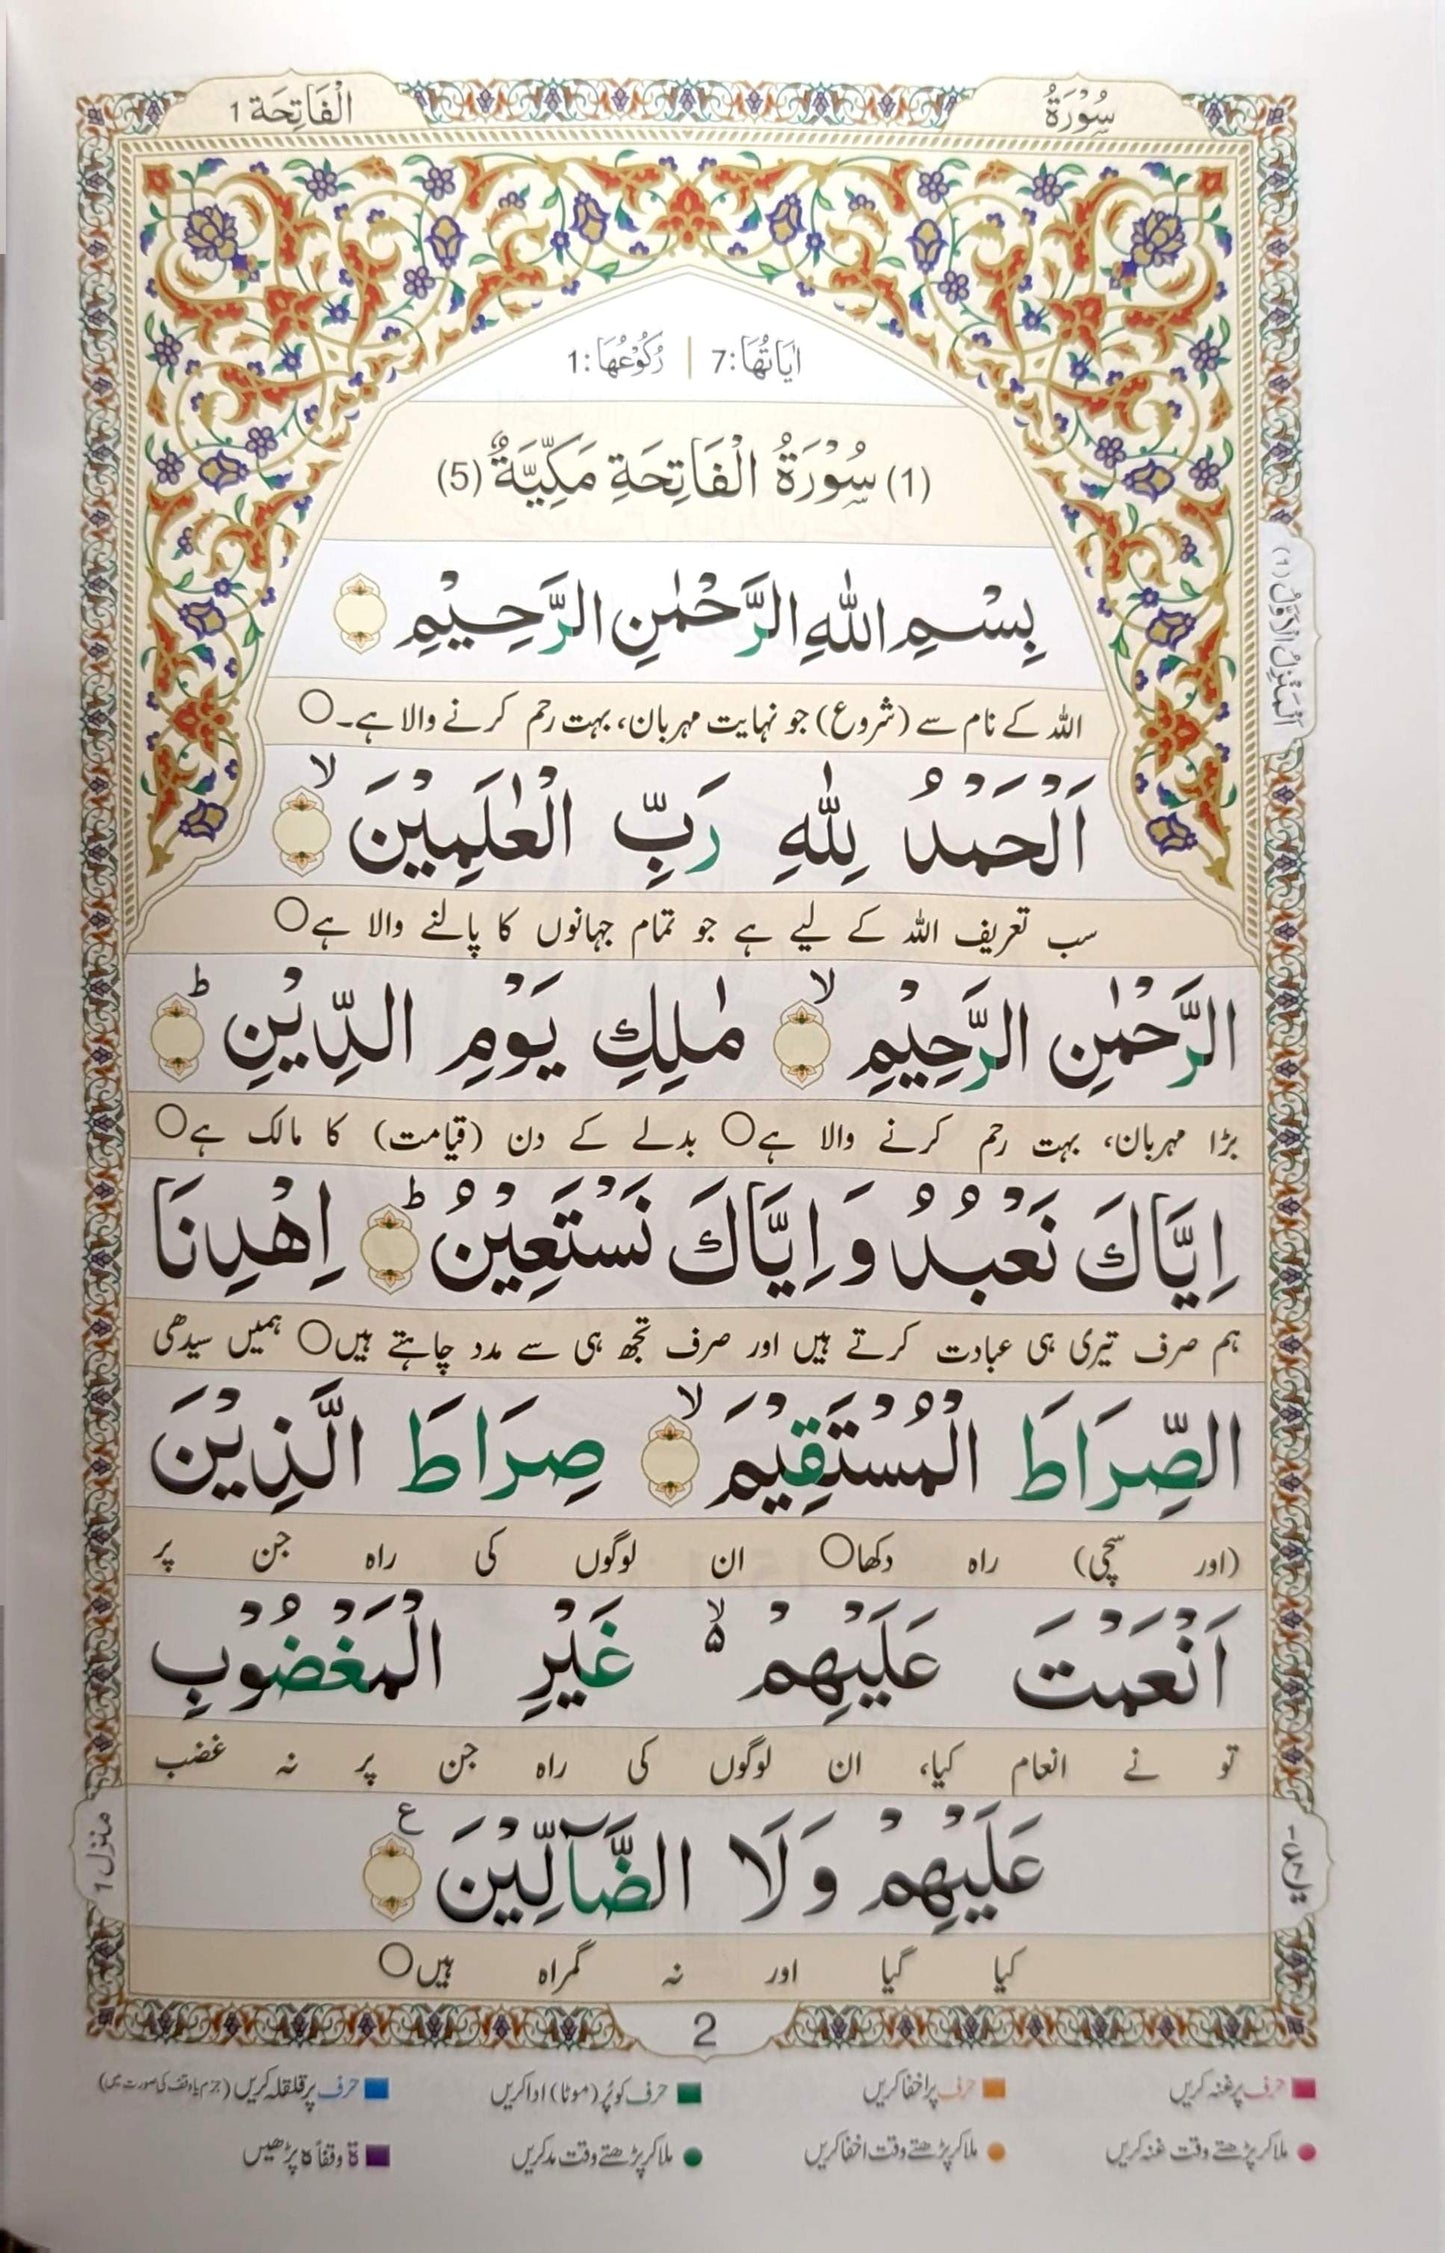 سُوْرَةُ
الْفَاتِحَة 1
اٰيَاتُهَا: 7 | رُكُوْعُهَا: 1
(1) سُوْرَةُ الْفَاتِحَةِ مَكِّيَّةٌ (5)
بِسْمِ اللّٰهِ الرَّحْمٰنِ الرَّحِيْمِ
اللہ کے نام سے (شروع) جو نہایت مہربان، بہت رحم کرنے والا ہے۔○
اَلْحَمْدُ لِلّٰهِ رَبِّ الْعٰلَمِيْنَ ۙ
سب تعریف اللہ کے لیے ہے جو تمام جہانوں کا پالنے والا ہے○
الرَّحْمٰنِ الرَّحِيْمِ ۙ مٰلِكِ يَوْمِ الدِّيْنِ ؕ
بڑا مہربان، بہت رحم کرنے والا ہے○ بدلے کے دن (قیامت) کا مالک ہے○
اِيَّاكَ نَعْبُدُ وَ اِيَّاكَ نَسْتَعِيْنُ ؕ اِهْدِنَا
ہم صرف تیری ہی عبادت کرتے ہیں اور صرف تجھ ہی سے مدد چاہتے ہیں○ ہمیں سیدھی
الصِّرَاطَ الْمُسْتَقِيْمَ ۙ صِرَاطَ الَّذِيْنَ
(اور سچی) راہ دکھا○ ان لوگوں کی راہ جن پر
اَنْعَمْتَ عَلَيْهِمْ ۙ۵ غَيْرِ الْمَغْضُوْبِ
تو نے انعام کیا، ان لوگوں کی راہ جن پر نہ غضب
عَلَيْهِمْ وَلَا الضَّآلِّيْنَ ع
کیا گیا اور نہ گمراہ ہیں○
اَلْمَنْزِلُ الْاَوَّلُ (1)
منزل 1
2
حرف پر غنہ کریں
حرف پر اخفا کریں
حرف کو پُر (موٹا) ادا کریں
حرف پر قلقلہ کریں (جزم یا وقف کی صورت میں)
ملا کر پڑھتے وقت غنہ کریں
ملا کر پڑھتے وقت اخفا کریں
ملا کر پڑھتے وقت مد کریں
ة وقفاً ہ پڑھیں